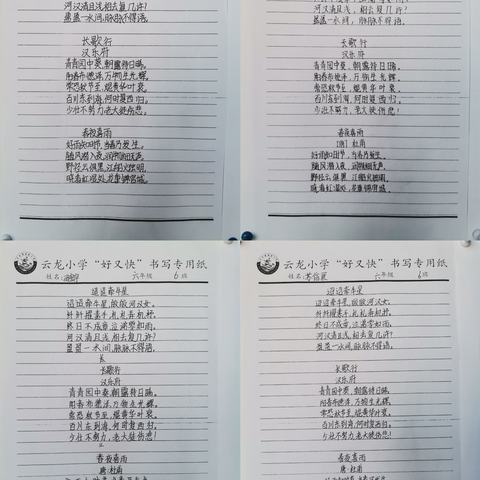 河汉清且浅,相去复几许?
盈盈一水间,脉脉不得语。
长歌行
汉乐府
青青园中葵,朝露待日晞。
阳春布德泽,万物生光辉。
常恐秋节至,焜黄华叶衰。
百川东到海,何时复西归。
少壮不努力,老大徒伤悲。
春夜喜雨
好雨知时节,当春乃发生。
随风潜入夜,润物细无声。
野径云俱黑,江船火烛明。
晓看红湿处,花重锦官城。
河汉清且浅,相去复几许?
盈盈一水间,脉脉不得语。
长歌行
汉乐府
青青园中葵,朝露待日晞。
阳春布德泽,万物生光辉。
常恐秋节至,焜黄华叶衰。
百川东到海,何时复西归。
少壮不努力,老大徒伤悲!
春夜喜雨
杜甫
好雨知时节,当春乃发生。
随风潜入夜,润物细无声。
野径云俱黑,江船火烛明。
晓看红湿处,花重锦官城。
云龙小学“好又快”书写专用纸
姓名: 六年级 6班
迢迢牵牛星
迢迢牵牛星,皎皎河汉女。
纤纤擢素手,札札弄机杼。
终日不成章,泣涕零如雨。
河汉清且浅,相去复几许?
盈盈一水间,脉脉不得语。
长
长歌行
汉乐府
青青园中葵,朝露待日晞。
阳春布德泽,万物生光辉。
常恐秋节至,焜黄华叶衰。
百川东到海,何时复西归。
少壮不努力,老大徒伤悲!
春夜喜雨
唐·杜甫
云龙小学“好又快”书写专用纸
姓名: 六年级 6班
迢迢牵牛星
迢迢牵牛星,皎皎河汉女。
纤纤擢素手,札札弄机杼。
终日不成章,泣涕零如雨。
河汉清且浅,相去复几许?
盈盈一水间,脉脉不得语。
长歌行
汉乐府
青青园中葵,朝露待日晞。
阳春布德泽,万物生光辉。
常恐秋节至,焜黄华叶衰。
百川东到海,何时复西归。
少壮不努力,老大徒伤悲!
春夜喜雨
唐·杜甫